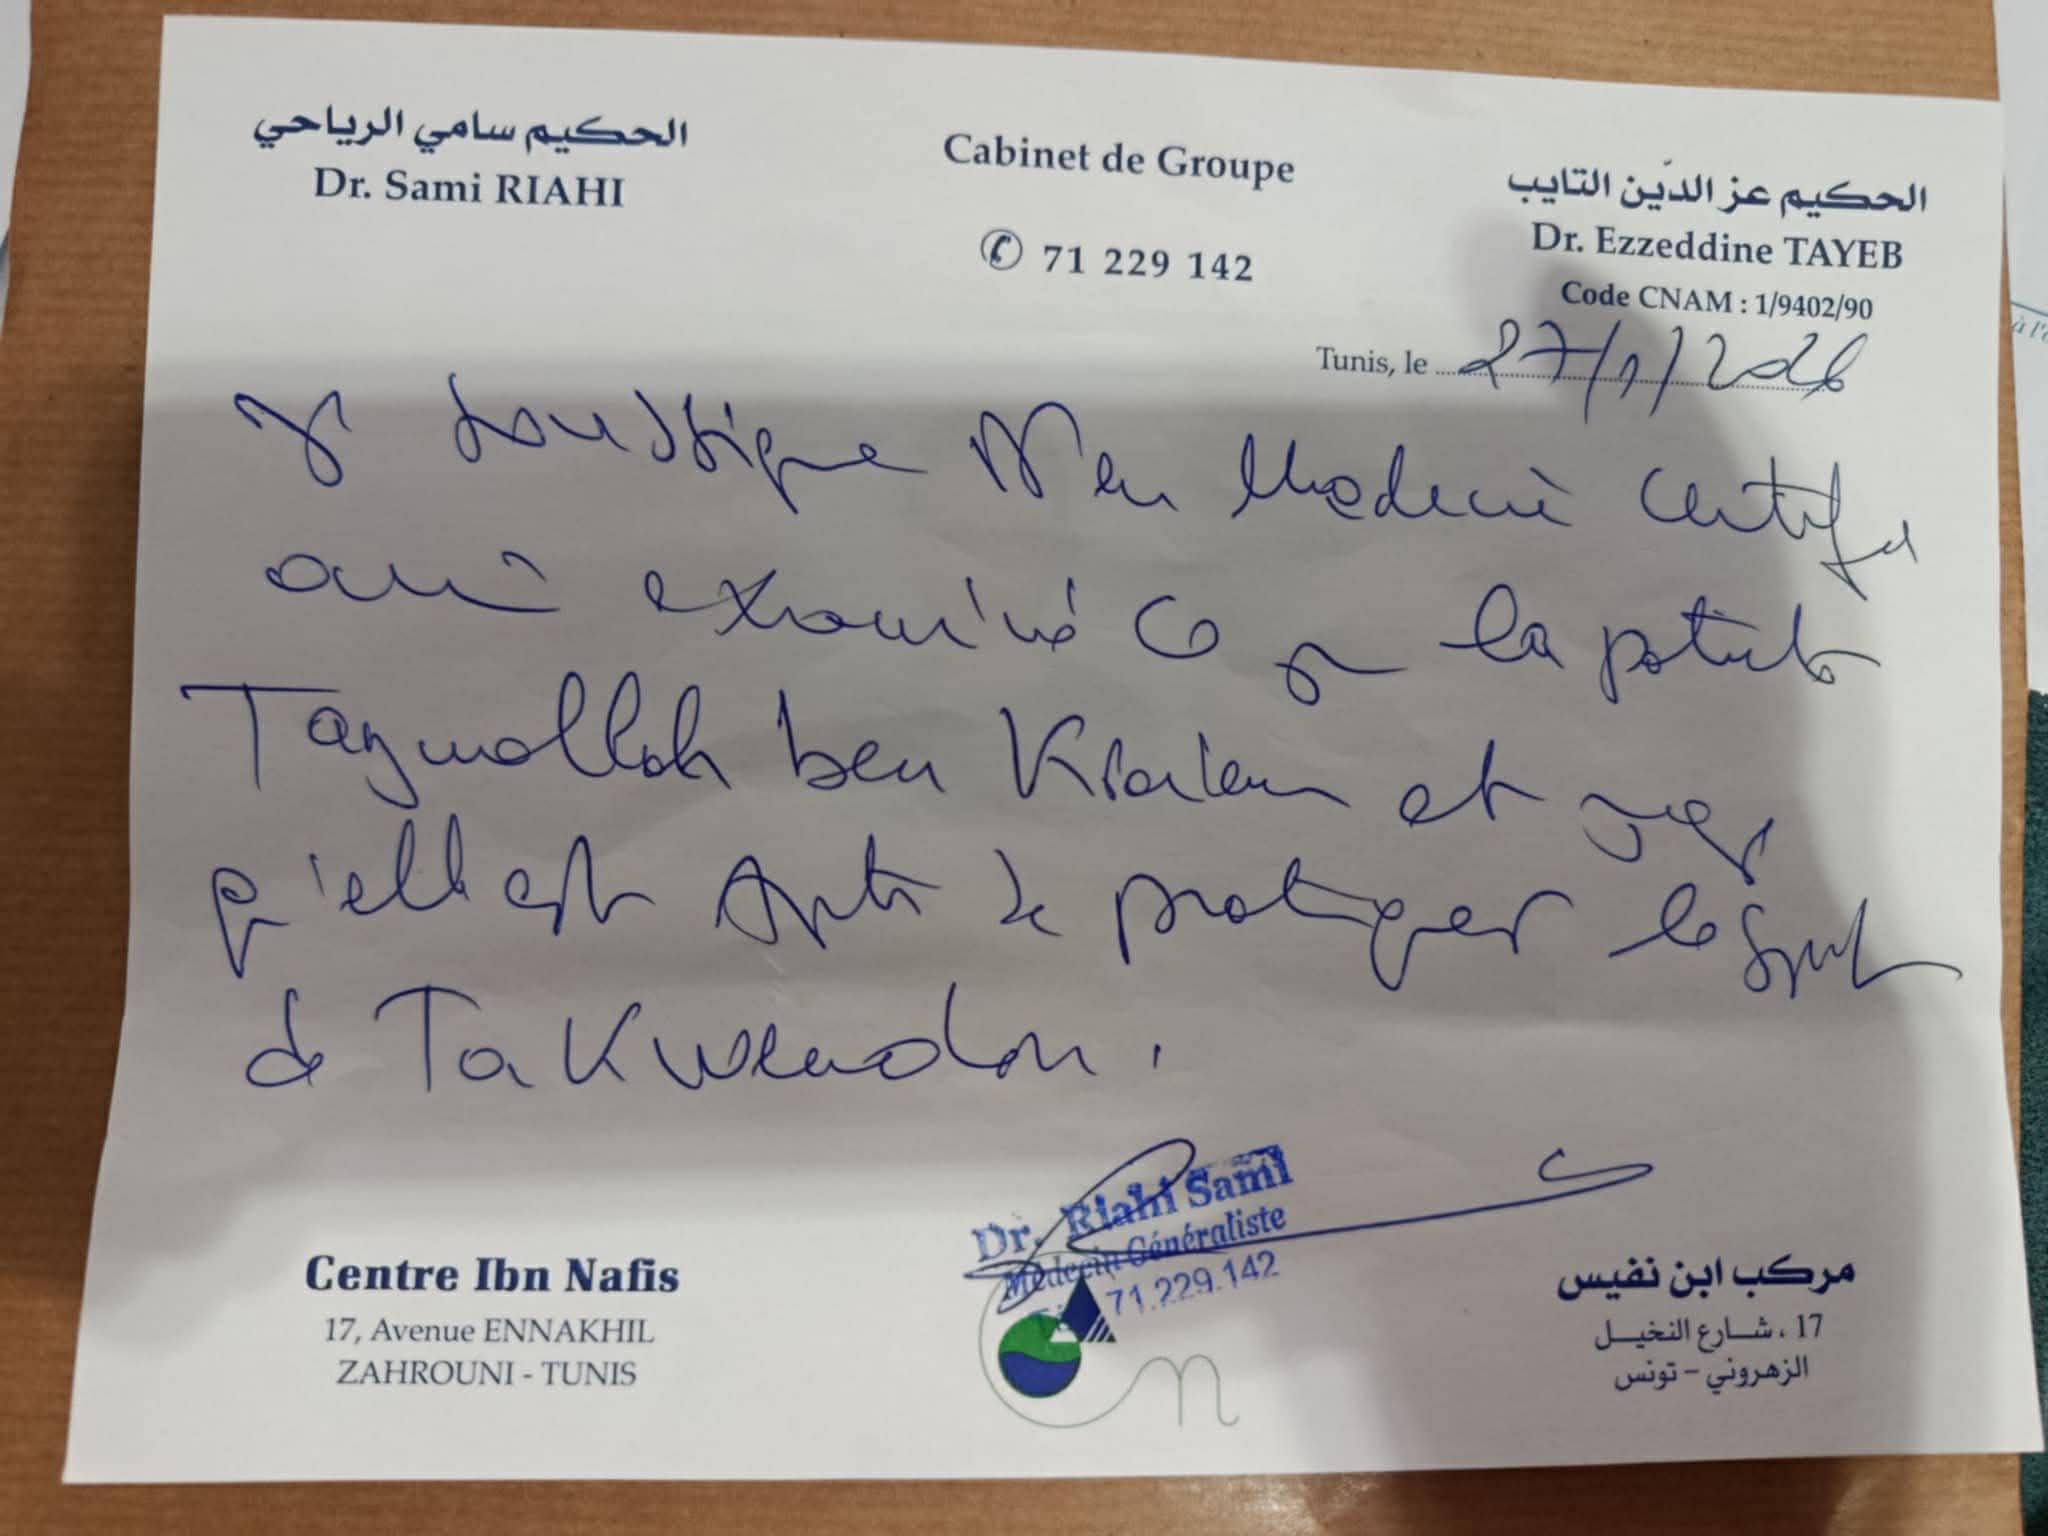 الحكيم سامي الرياحي
Dr. Sami RIAHI
Cabinet de Groupe
71 229 142
الحكيم عز الدّين التايب
Dr. Ezzeddine TAYEB
Code CNAM : 1/9402/90
Tunis, le 27/1/2026
Je soussigné Dr en Medecine certifie
avoir examiné ce jr la patiente
Taymallah ben Kraiem et
qu'elle est Apte de pratiquer le sport
de Takwendou.
Dr. Riahi Sami
Médecin Généraliste
71.229.142
Centre Ibn Nafis
17, Avenue ENNAKHIL
ZAHROUNI - TUNIS
مركب ابن نفيس
17 ، شارع النخيل
الزهروني - تونس
à l'